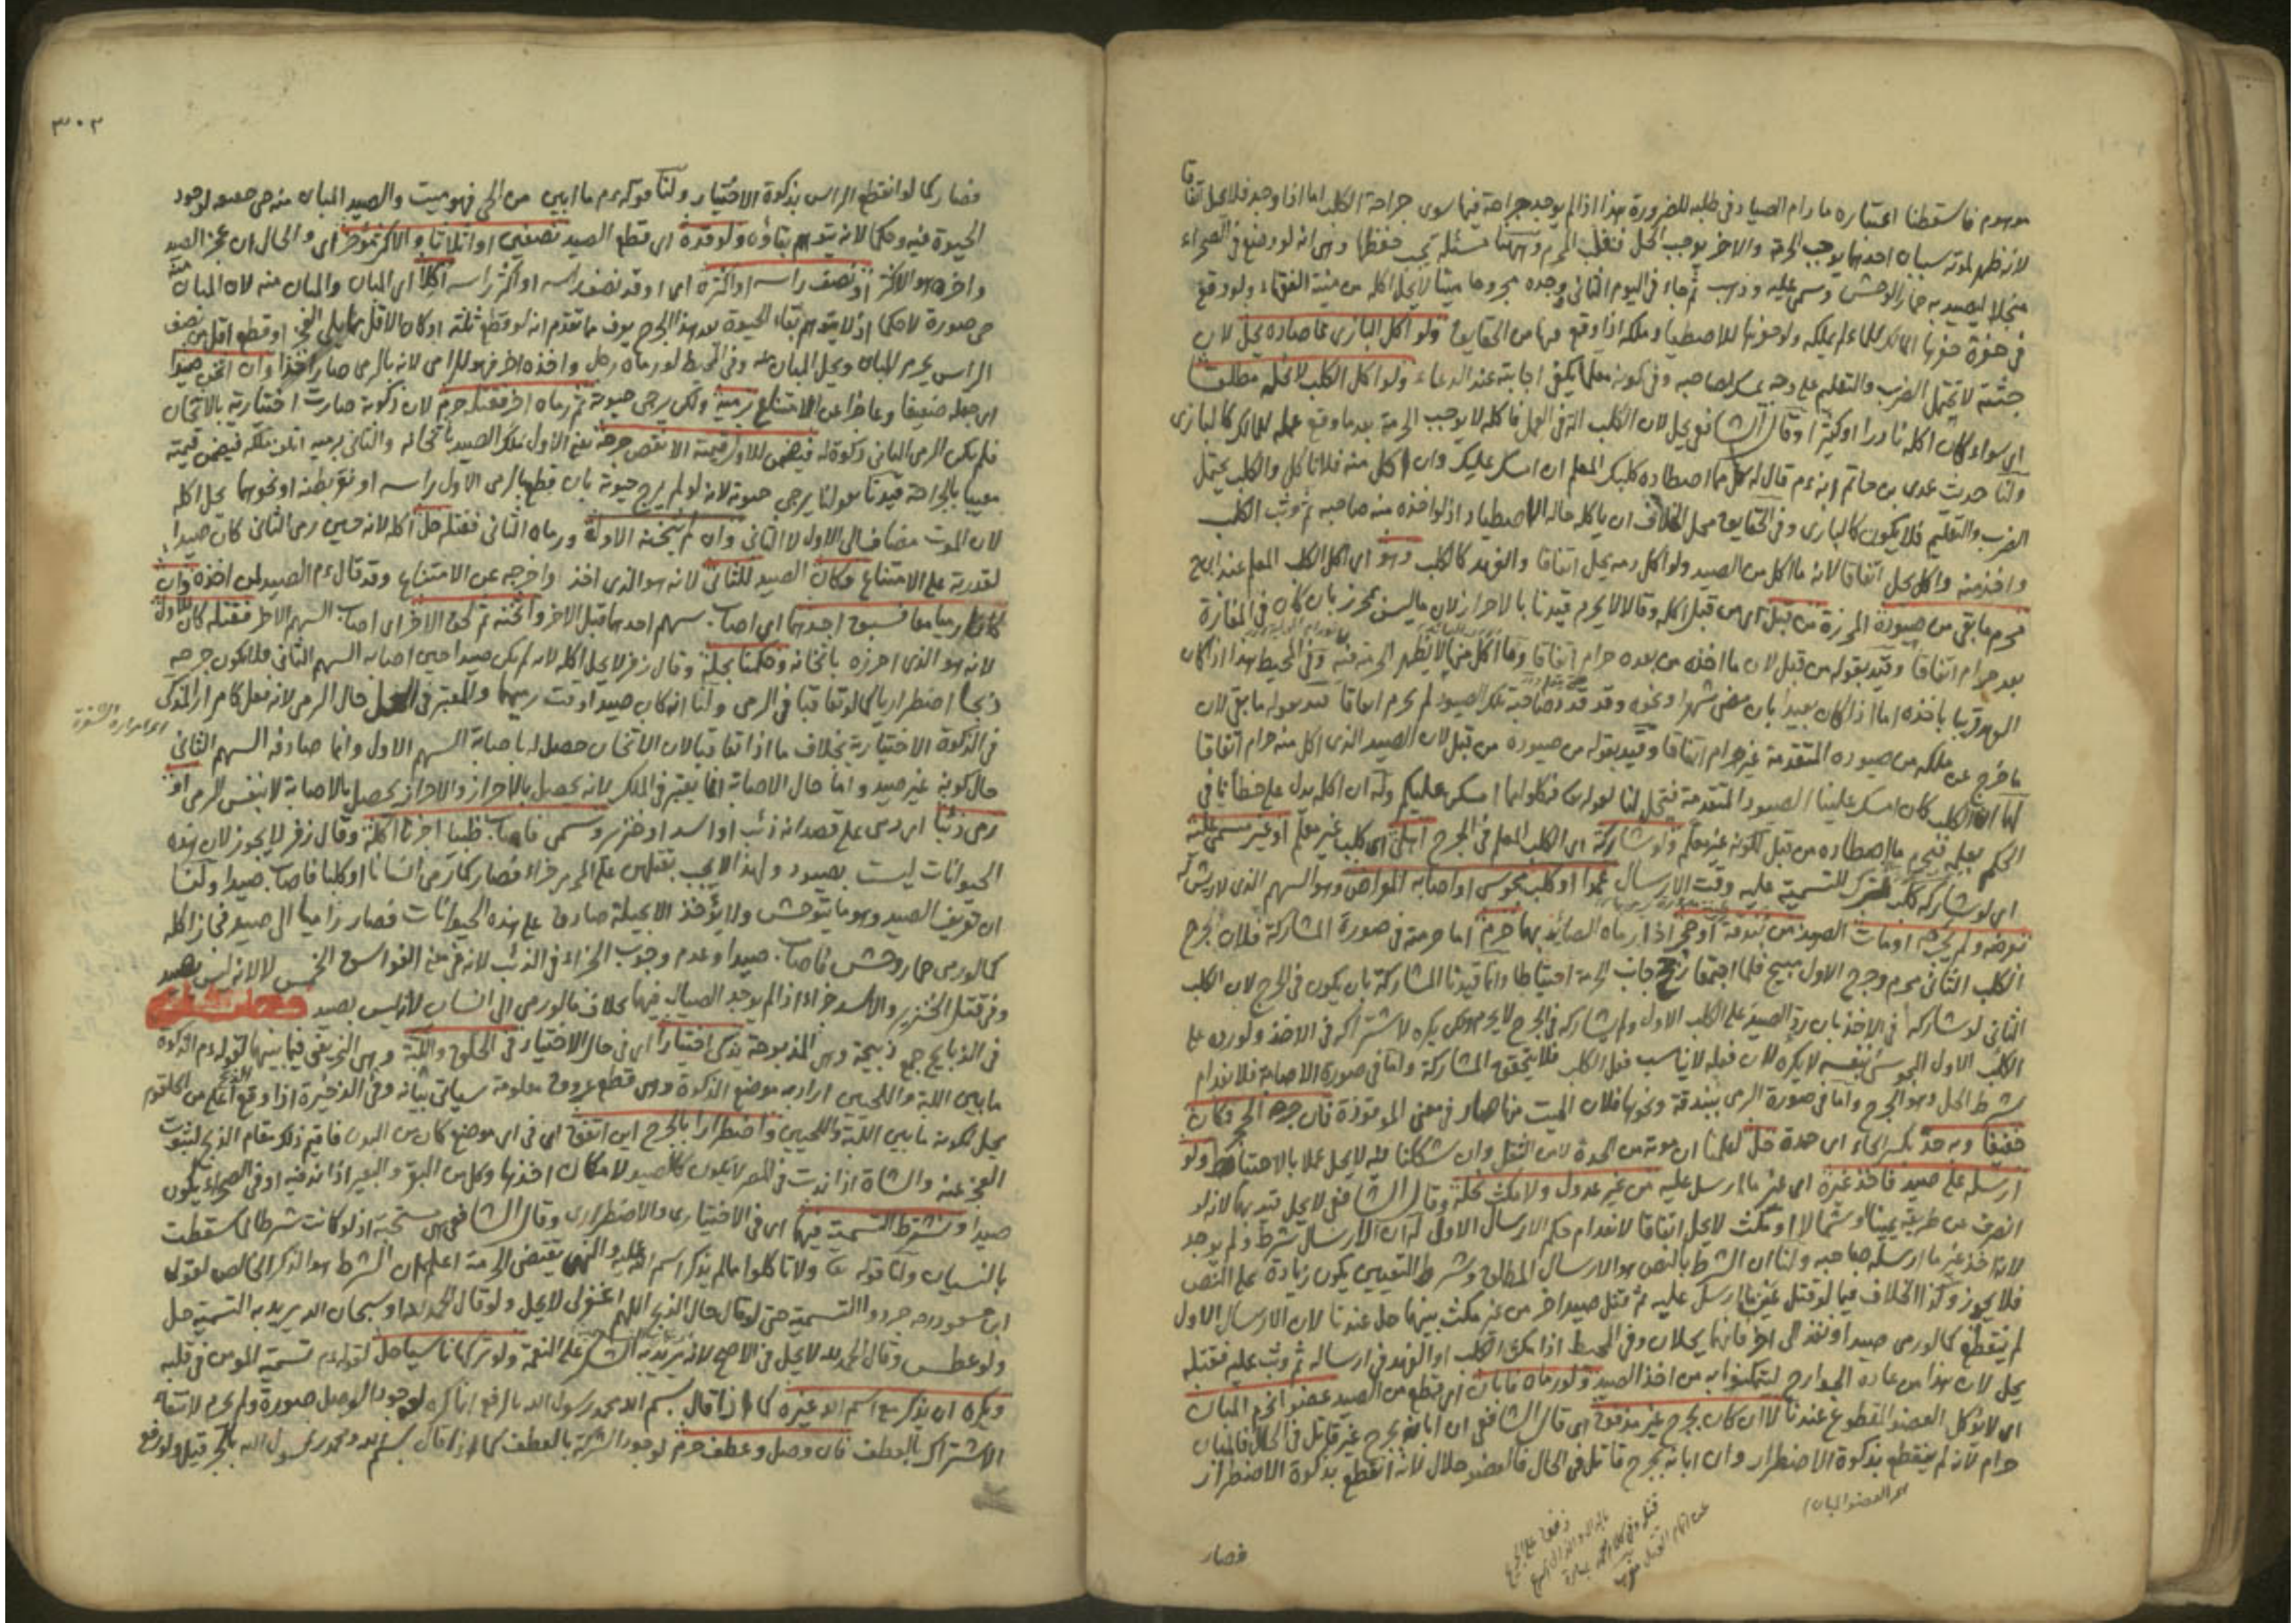 موهوم فاسقطنا اعتباره مادام الصياد في طلبه للضرورة هذا اذا لم يوجد جراحة فيما سوى جراحة الكلب اما اذا وجد فلا يحل اتفاقا
لانه ظهر لموته سببان احدهما يوجب الحرمة والاخر يوجب الحل فتغلب المحرم وههنا مسئلة يجب حفظها وهي انه لو وضع في الصحراء
منجلا ليصيد به حمار الوحش وسمى عليه وذهب ثم جاء في اليوم الثاني وجده مجروحا ميتا لا يحل اكله من منية الفقهاء ولو وقع
في حفرة حفرها للماء لم يملكه ولو حفرها للاصطياد ملكه اذا وقع فيها من الحقايق ولو اكل البازي مما صاده يحل لان
جثته لا تحتمل الضرب والتعليم على وجه يمسك لصاحبه وفي كونه معلما يكفي اجابته عند الدعاء ولو اكل الكلب لا نحله مطلقا
اي سواء كان اكله نادرا او كثيرا وقال الشافعي يحل لان الكلب الة في العمل فاكله لا يوجب الحرمة بعد ما وقع عمله للمالك كالبازي
ولنا حديث عدي بن حاتم انه ءم قال له كل مما اصطاده كلبك المعلم ان امسك عليك وان اكل منه فلا تاكل والكلب يحتمل
الضرب والتعليم فلا يكون كالبازي وفي الحقايق محل الخلاف ان ياكله حالة الاصطياد اذ لو اخذه منه صاحبه ثم وثب الكلب
واخذ منه واكل يحل اتفاقا لانه ما اكل من الصيد ولو اكل دمه يحل اتفاقا والفهد كالكلب وهو اي اكل الكلب المعلم عند ابي ح
محرم ما بقي من صيوده المحرزة من قبل اي من قبل اكله وقالا لا يحرم قيدنا بالاحراز لان ما ليس بمحرز بان كان في المفازة
بعد حرام اتفاقا وقيد بقوله من قبل لان ما اخذه من بعده حرام اتفاقا وما اكل منها لا يظهر الحرمة فيه وفي المحيط هذا اذا كان
العهد قريبا باخذه اما اذا كان بعيدا بان مضى شهر او نحوه وقد قدد صاحبه تلك الصيود لم يحرم اتفاقا قيد بقوله ما بقي لان
ما خرج عن ملكه من صيوده المتقدمة غير حرام اتفاقا وقيد بقوله من صيوده من قبل لان الصيد الذي اكل منه حرام اتفاقا
لهما ان الكلب كان امسك علينا الصيود المتقدمة فتحل لنا لقوله تعا فكلوا مما امسكن عليكم وله ان اكله يدل على خطائنا في
الحكم بعلمه فتحرم ما اصطاده من قبل لكونه غير معلم ولو شاركه اي الكلب المعلم في الجرح اهلي اي كلب غير معلم او غير مسمى عليه
اي لو شاركه كلب ترك التسمية عليه وقت الارسال عمدا او كلب مجوسي او اصابه المعراض وهو السهم الذي لا ريش له
بعرضه ولم يجرحه او مات الصيد من بندقة او حجر اذا رماه الصائد بها حرم اما حرمته في صورة المشاركة فلان جرح
الكلب الثاني محرم وجرح الاول مبيح فلما اجتمعا رجح جانب الحرمة احتياطا وانما قيدنا المشاركة بان يكون في الجرح لان الكلب
الثاني لو شاركه في الاخذ بان رد الصيد على الكلب الاول ولم يشاركه في الجرح لا يحرم ولكن يكره لاشتراكه في الاخذ ولو رده على
الكلب الاول المجوسي بنفسه لا يكره لان فعله لا يناسب فعل الكلب فلا يتحقق المشاركة واما في صورة الاصابة فلانعدام
شرط الحل وهو الجرح واما في صورة الرمي ببندقة ونحوها فلان الميت منها صار في معنى الموقوذة فان جرحه الحجر وكان
خفيفا وبه حدة بكسر الحاء اي حدة حل لعلمنا ان موته من الحدة لا من الثقل وان شككنا فيه لا يحل عملا بالاحتياط ولو
ارسله على صيد فاخذ غيره اي غير ما ارسل عليه من غير عدول ولا مكث نحله وقال الشافعي لا يحل قيد بهما لانه لو
انصرف من طريقه يمينا او شمالا او مكث لا يحل اتفاقا لانعدام حكم الارسال الاول له ان الارسال شرط ولم يوجد
لانه اخذ غير ما ارسله صاحبه ولنا ان الشرط بالنص هو الارسال المطلق وشرط التعيين يكون زيادة على النص
فلا يجوز وكذا الخلاف فيما لو قتل غير ما ارسل عليه ثم قتل صيدا اخر من غير مكث بينهما حل عندنا لان الارسال الاول
لم ينقطع كما لو رمى صيدا ونفذ الى اخر فانهما يحلان وفي المحيط اذا مكث الكلب او الفهد في ارساله ثم وثب عليه فقتله
يحل لان هذا من عادة الجوارح ليتمكنوا به من اخذ الصيد ولو رماه فابان اي قطع من الصيد عضوا نحرم المبان
اي لا يؤكل العضو المقطوع عندنا لا ان كان بجرح غير مدفق اي قال الشافعي ان ابانه بجرح غير قاتل في الحال فالمبان
حرام لانه لم ينقطع بذكوة الاضطرار وان ابانه بجرح قاتل في الحال فالعضو حلال لانه انقطع بذكوة الاضطرار
اي العضو المبان
فصار
٣٠٣
فصار كما لو انقطع الراس بذكوة الاختيار ولنا قوله ءم ما ابين من الحي فهو ميت والصيد المبان منه حي حقيقة لوجود
الحيوة فيه وحكما لانه يتوهم بقاؤه ولو قده اي قطع الصيد نصفين او اثلاثا والاكثر مؤخر اي والحال ان عجز الصيد
واخره هو الاكثر او نصف راسه او اكثره اي او قد نصف راسه او اكثر راسه اكلا اي المبان والمبان منه لان المبان منه
حي صورة لا حكما اذ لا يتوهم بقاء الحيوة بعد هذا الجرح يعرف مما تقدم انه لو قطع ثلثه او كان الاقل مما يلي العجز او قطع اقل من نصف
الراس يحرم المبان ويحل المبان منه وفي المحيط لو رماه رجل واخذه اخر فهو للرامي لانه بالرمي صار اخذا وان اثخن صيدا
اي جعله ضعيفا وعاجزا عن الامتناع برميه ولكن يرجى حيوته ثم رماه اخر فقتله حرم لان ذكوته صارت اختيارية بالاثخان
فلم يكن الرمي الثاني ذكوة له فيضمن للاول قيمته الا نقص جرحه يعني الاول ملك الصيد باثخانه والثاني برميه اتلف ملكه فيضمن قيمته
معيبا بالجراحة قيدنا بقولنا يرجى حيوته لانه لو لم يرج حيوته بان قطع بالرمي الاول راسه او بقر بطنه او نحوهما يحل اكله
لان الموت مضاف الى الاول لا الثاني وان لم يثخنه الاول ورماه الثاني فقتله حل اكله لانه حين رمى الثاني كان صيدا
لقدرته على الامتناع وكان الصيد للثاني لانه هو الذي اخذ واخرجه عن الامتناع وقد قال ءم الصيد لمن اخذه وان
كانا رميا معا فسبق احدهما اي اصاب سهم احدهما قبل الاخر واثخنه ثم لحق الاخر اي اصاب السهم الاخر فقتله كان للاول
لانه هو الذي احرزه باثخانه وحكمنا بحله وقال زفر لا يحل اكله لانه لم يكن صيدا حين اصابه السهم الثاني فلا يكون جرحه
ذبحا اضطراريا كما لو تعاقبا في الرمي ولنا انه كان صيدا وقت رميهما والمعتبر في الحل حال الرمي لانه فعل كامرار المدى
في الذكوة الاختيارية بخلاف ما اذا تعاقبا لان الاثخان حصل له باصابة السهم الاول وانما صادفه السهم الثاني
حال كونه غير صيد واما حال الاصابة انما يعتبر في الملك لانه يحصل بالاحراز والاحراز يحصل بالاصابة لا بنفس الرمي او
رمى ذئبا اي رمى على قصد انه ذئب او اسد او خنزير وسمى فاصاب ظبيا اجزنا اكله وقال زفر لا يجوز لان هذه
الحيوانات ليست بصيود ولهذا لا يجب بقتلهن على المحرم جزاء فصار كما رمى انسانا او كلبا فاصاب صيدا ولنا
ان تعريف الصيد وهو ما يتوحش ولا يؤخذ الا بحيلة صادق على هذه الحيوانات فصار راميا الى صيد فجاز اكله
كما لو رمى حمار وحش فاصاب صيدا وعدم وجوب الجزاء في الذئب لانه في معنى الفواسق الخمس لا لانه ليس بصيد
وفي قتل الخنزير والاسد جزاء اذا لم يوجد الصيال فيهما بخلاف ما لو رمى الى انسان لانه ليس بصيد فصل
في الذبايح جمع ذبيحة وهي المذبوحة يذكى اختيارا اي في حال الاختيار في الحلق واللبة وهي النحر يعني فيما بينهما لقوله ءم الذكوة
ما بين اللبة واللحيين اراد به موضع الذكوة وهي قطع عروق معلومة سياتي بيانه وفي الذخيرة اذا وقع الذبح اعلى من الحلقوم
يحل لكونه ما بين اللبة واللحيين واضطرارا بالجرح اين اتفق اي في اي موضع كان من البدن فاقيم ذلك مقام الذبح لثبوت
العجز عنه والشاة اذا ندت في المصر لا يكون كالصيد لامكان اخذها وكل من البقر والبعير اذا ند فيه او في الصحراء يكون
صيدا ونشترط التسمية فيهما اي في الاختياري والاضطراري وقال الشافعي هي مستحبة اذ لو كانت شرطا لما سقطت
بالنسيان ولنا قوله تعا ولا تاكلوا مما لم يذكر اسم الله عليه والنهي يقتضي الحرمة اعلم ان الشرط هو الذكر الخالص لقول
ابن مسعود رضه جردوا التسمية حتى لو قال حال الذبح اللهم اغفر لي لا يحل ولو قال الحمد لله او سبحان الله يريد به التسمية حل
ولو عطس وقال الحمد لله لا يحل في الاصح لانه يريد به الشكر على النعمة ولو تركها ناسيا حل لقوله ءم تسمية المؤمن في قلبه
ويكره ان يذكر مع اسم الله غيره كما اذا قال بسم الله محمد رسول الله بالرفع انما كره لوجود الوصل صورة ولم يحرم لانتفاء
الاشتراك بالعطف فان وصل وعطف حرم لوجود الشركة بالعطف كما اذا قال بسم الله ومحمد رسول الله بالجر قيل ولو رفع